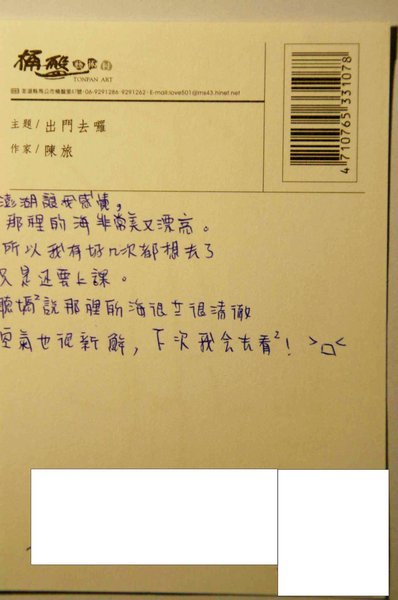 桶盤藝術村
TONPAN ART
澎湖縣馬公市桶盤里41號·06-9291286·9291262·E-mail:love501@ms43.hinet.net
主題/出門去囉
作家/陳旅
4710765331078
澎湖讓我感覺,
那裡的海非常美又漂亮。
所以我有好几次都想去了
只是還要上課。
聽媽²說那裡的海很立很清徹
空氣也很新鮮,下次我会去看²! >ㅁ<